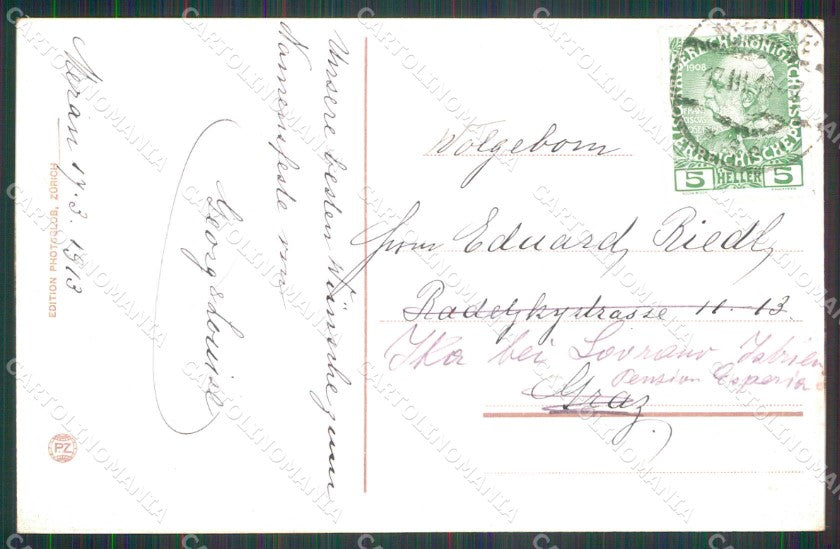 Meran 17.3.1913
Unsere besten Wünsche zum
Namensfeste von
Georg & Louise
EDITION PHOTOGLOB, ZÜRICH
PZ
1908
5 HELLER 5
Wolgeborn
Eduard Riedl
Radetzkystrasse 11. 13.
Ika bei Lovrano Istrien
Pension Esperia
Graz.
CARTOLINOMANIA